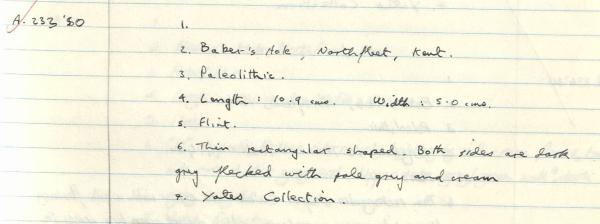 A. 233 '80
1.
2. Baker's Hole, Northfleet, Kent.
3. Paleolithic.
4. Length : 10.9 cms. Width : 5.0 cms.
5. Flint.
6. Thin rectangular shaped. Both sides are dark
grey flecked with pale grey and cream
7. Yates Collection.